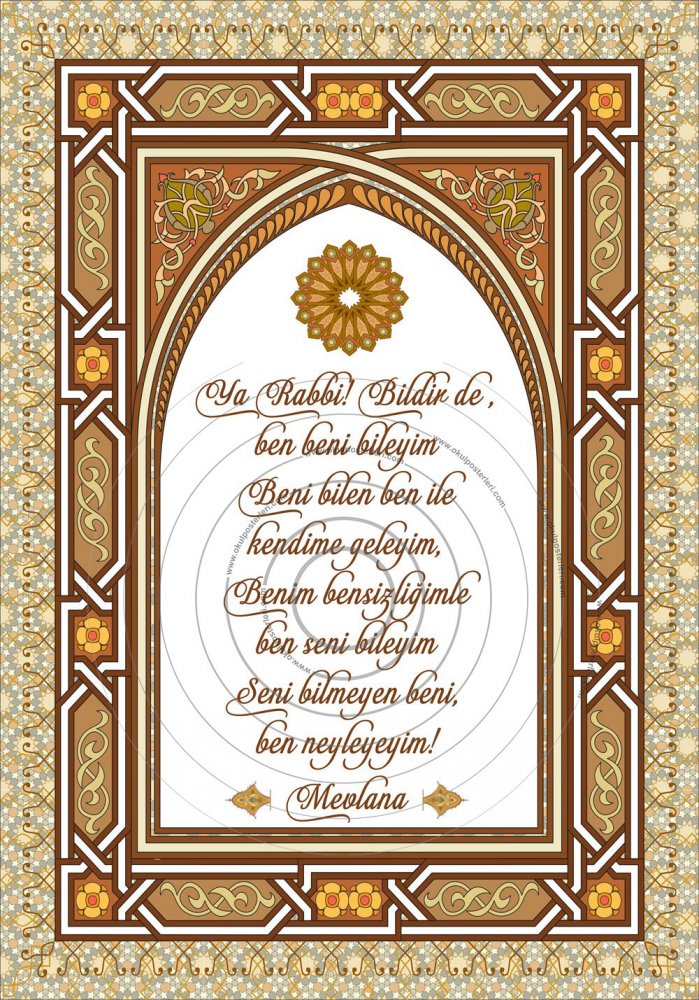 Ya Rabbi! Bildir de ,
ben beni bileyim
Beni bilen ben ile
kendime geleyim,
Benim bensizliğimle
ben seni bileyim
Seni bilmeyen beni,
ben neyleyeyim!
Mevlana
www.okulposterleri.com